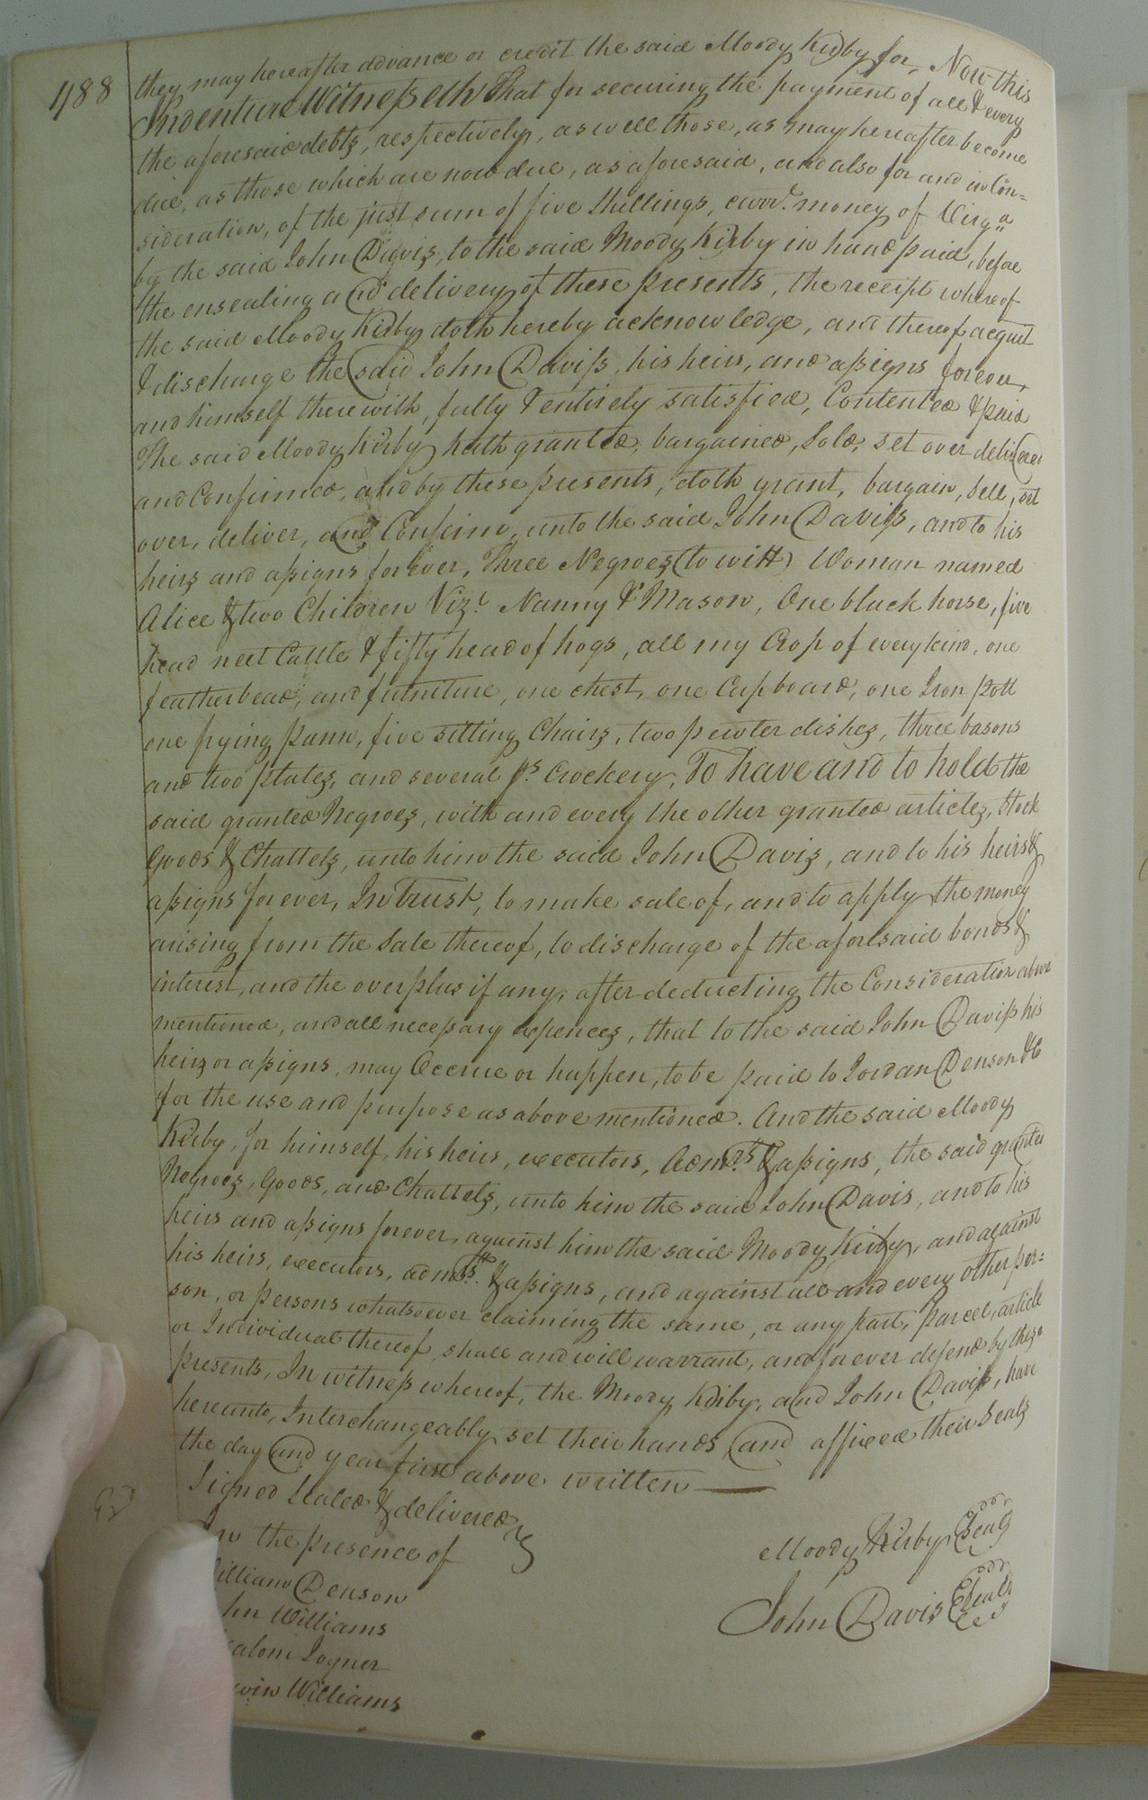 488
they may hereafter advance or credit the said Moody Kirby for, Now this
Indenture Witnesseth That for securing the payment of all & every
the aforesaid debts, respectively, as well those, as may hereafter become
due, as those which are now due, as aforesaid, and also for and in Con-
sideration, of the just sum of five Shillings, curr.t money of Virg.a
by the said John Davis, to the said Moody Kirby in hand paid, before
the ensealing and delivery of these presents, the receipt whereof
the said Moody Kirby doth hereby acknowledge, and thereof acquit
& discharge the said John Daviss, his heirs, and assigns forever,
and himself therewith, fully & entirely satisfied, Contented & paid
The said Moody Kirby hath granted, bargained, Sold, set over delivered
and Confirmed, and by these presents, doth grant, bargain, sell, set
over, deliver, and Confirm, unto the said John Daviss, and to his
heirs and assigns forever, Three Negroes (to witt) Woman named
Alice & two Children Viz.t Nanny & Mason, One black horse, five
head neet Cattle & fifty head of hogs, all my Crop of every kind, one
featherbead, and furniture, one chest, one Cupboard, one Iron pott
one frying pann, five sitting Chairs, two pewter dishes, three basons
and two plates, and several ps Crockery, To have and to hold the
said granted Negroes, with and every the other granted articles, Stock
Goods & Chattels, unto him the said John Davis, and to his heirs &
assigns forever, In Trust, to make sale of, and to apply the money
arising from the Sale thereof, to discharge of the aforesaid bonds &
interest, and the overplus if any, after deducting the Consideration above
mentioned, and all necessary expences, that to the said John Daviss his
heirs or assigns, may Accrue or happen, to be paid to Jordan Denson &C
for the use and purpose as above mentioned. And the said Moody
Kirby, for himself, his heirs, executors, Adm.rs & assigns, the said granted
Negroes, Goods, and Chattels, unto him the said John Davis, and to his
heirs and assigns forever, against him the said Moody Kirby, and against
his heirs, executors, adm.rs & assigns, and against all and every other per=
son, or persons whatsoever claiming the same, or any part, parcel, article
or Individual thereof, shall and will warrant, and forever defend by these
presents, In witness whereof, the Moody Kirby, and John Daviss, have
hereunto, Interchangeably set their hands, and affixed their Seals
the day and year first above written
Signed Sealed & delivered
the presence of
Moody Kirby Seal
William Denson
John Davis Seal
hn Williams
salom Joyner
win Williams